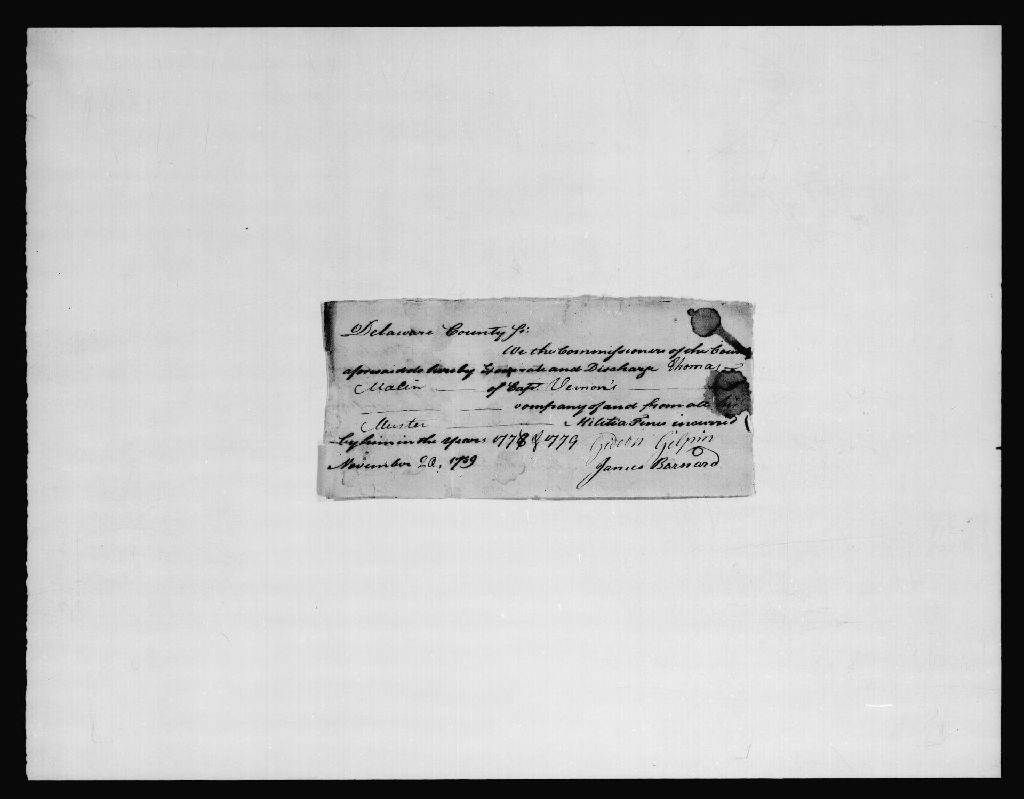 Delaware County Ss:
We the Commissioners of the Coun
aforesaid do hereby Exonerate and Discharge Thomas
Malin of Capt. Vernon's
company of and from all the
Muster Militia Fines incurred
by him in the years 1778 & 1779 Gideon Gilpin
November 1789 James Barnard